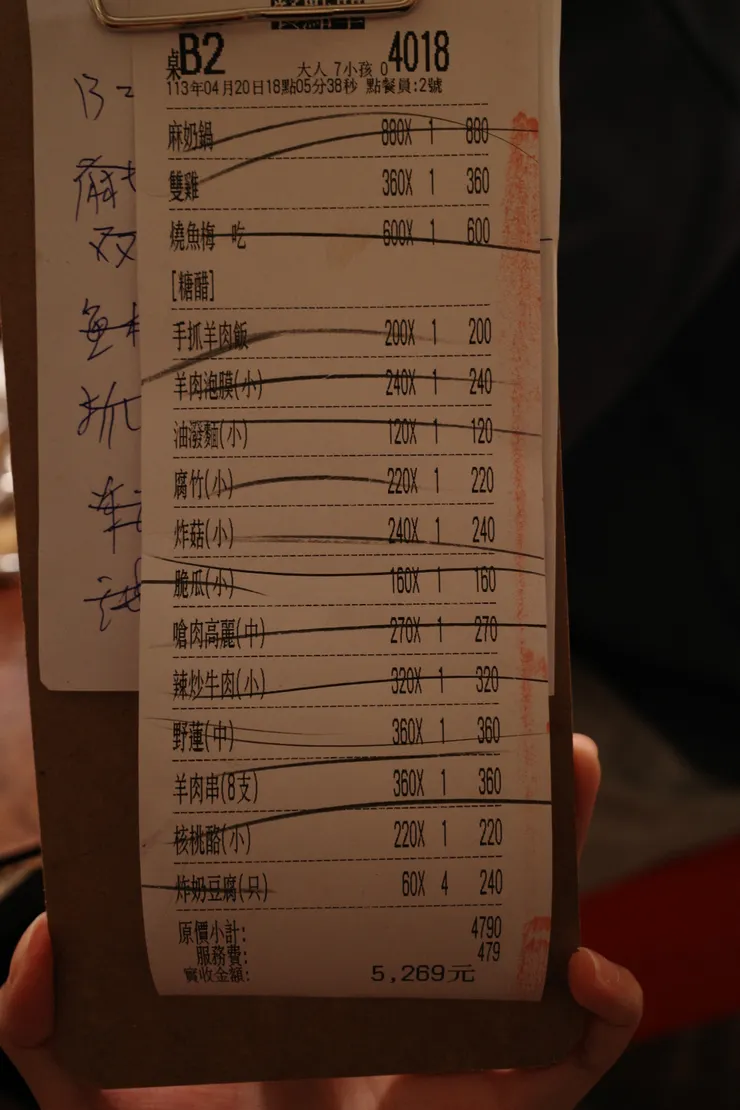 桌B2 大人 7小孩 0 4018
113年04月20日18點05分38秒 點餐員:2號
麻奶鍋 880X 1 880
雙雞 360X 1 360
燒魚梅 吃 600X 1 600
[糖醋]
手抓羊肉飯 200X 1 200
羊肉泡膜(小) 240X 1 240
油潑麵(小) 120X 1 120
腐竹(小) 220X 1 220
炸菇(小) 240X 1 240
脆瓜(小) 160X 1 160
嗆肉高麗(中) 270X 1 270
辣炒牛肉(小) 320X 1 320
野蓮(中) 360X 1 360
羊肉串(8支) 360X 1 360
核桃酪(小) 220X 1 220
炸奶豆腐(只) 60X 4 240
原價小計: 4790
服務費: 479
實收金額: 5,269元
双